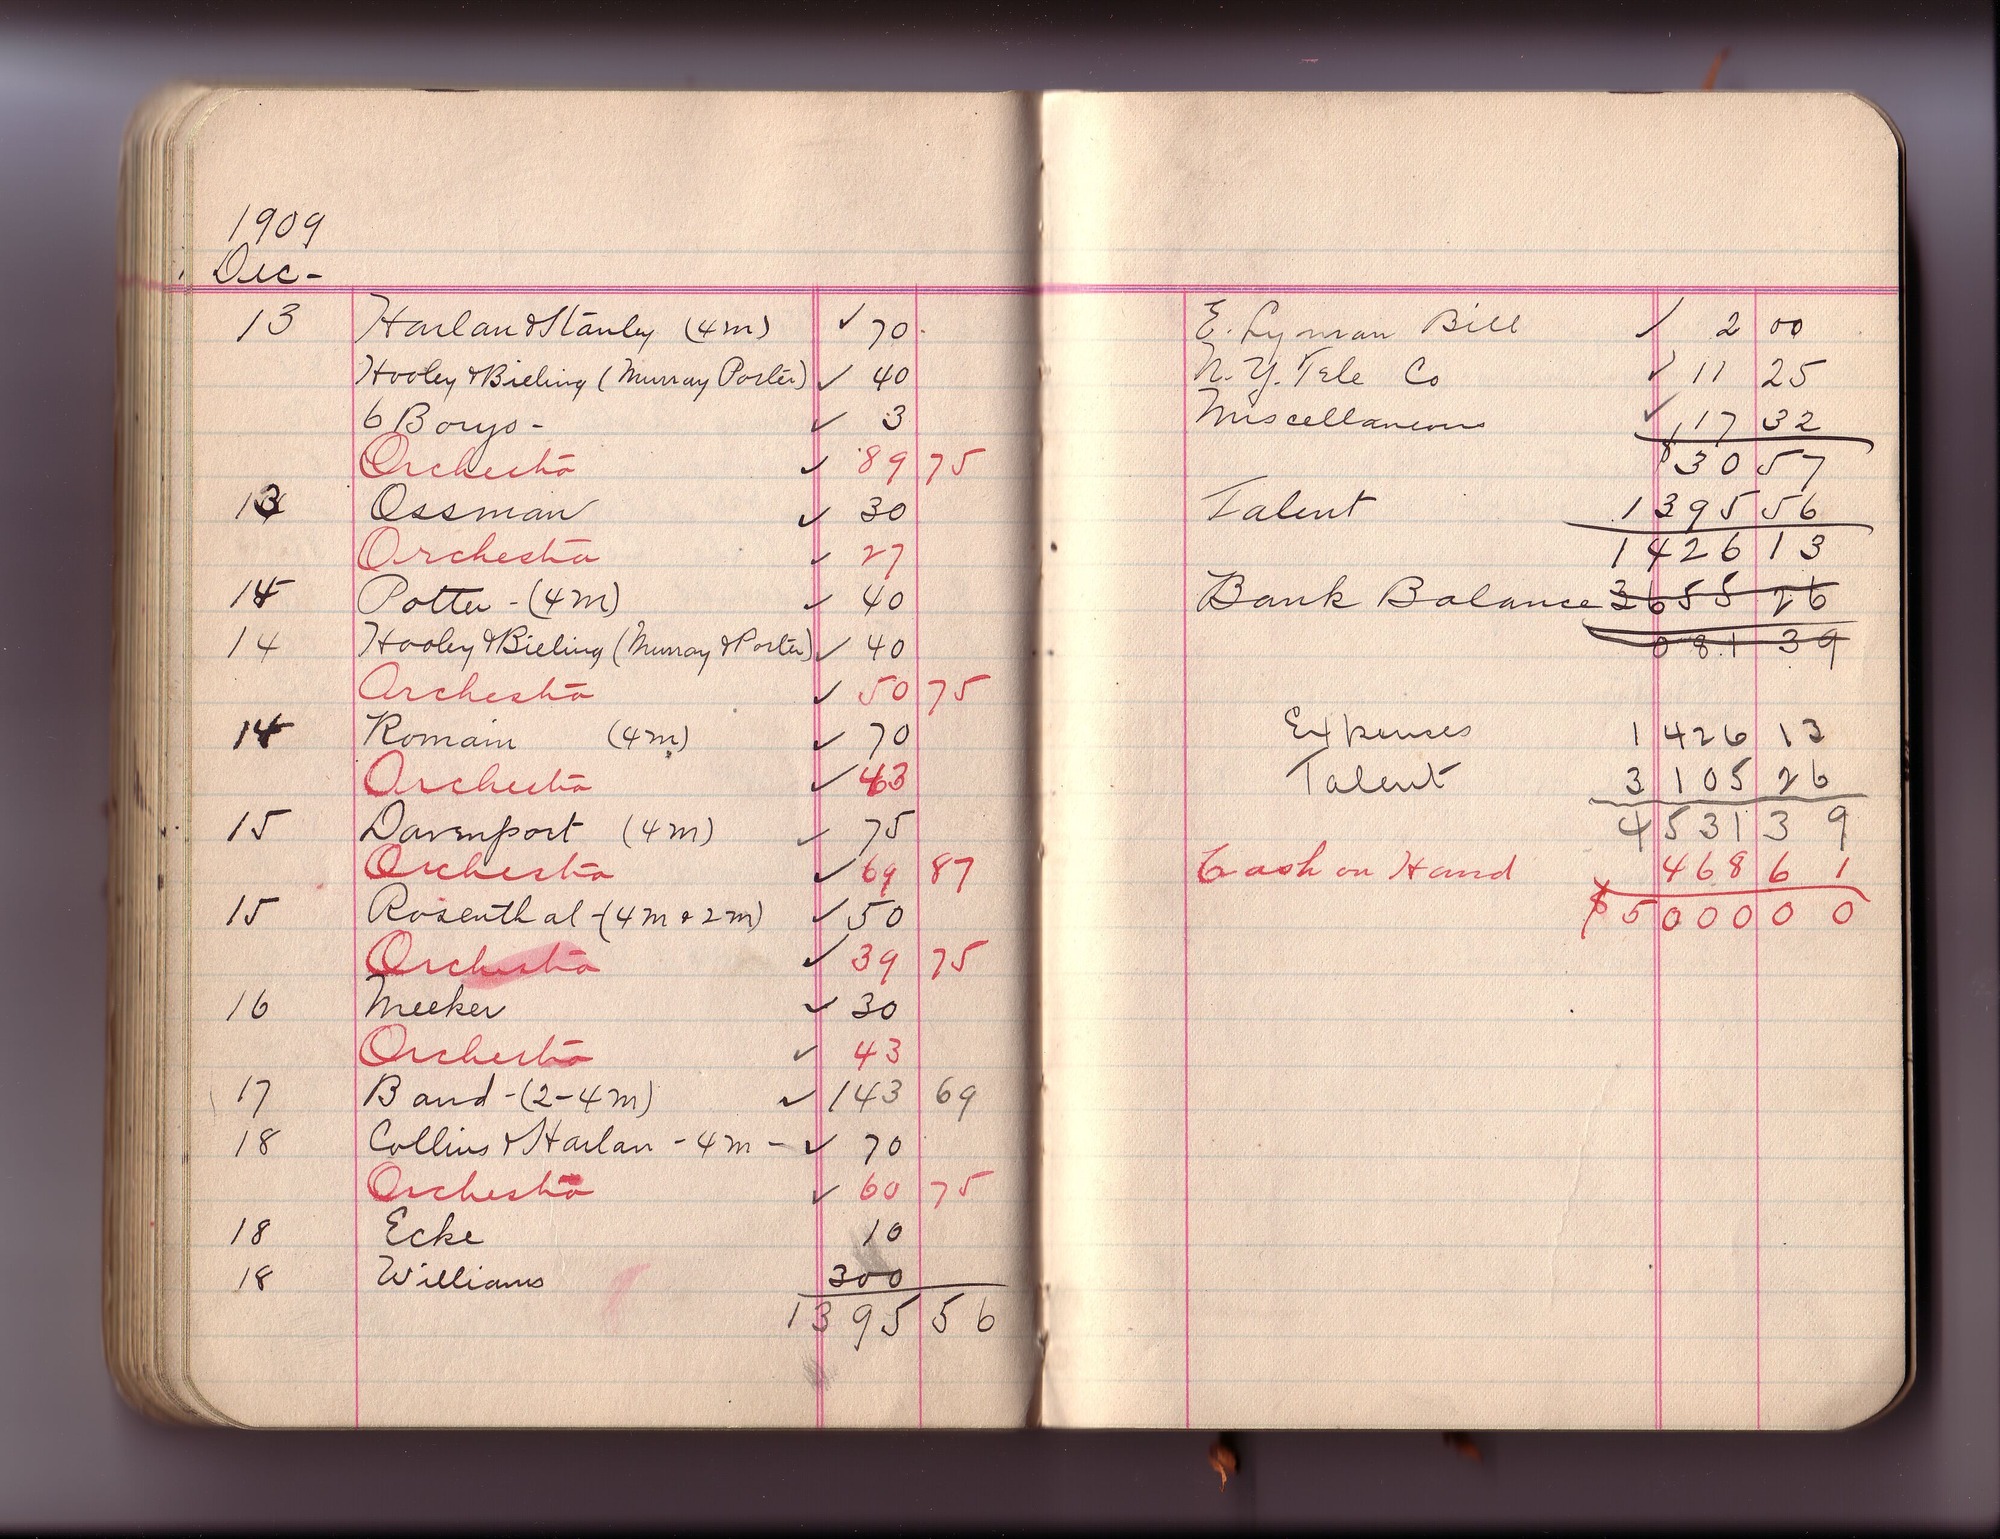 1909
Dec-
13 Harlan & Stanley (4m) ✓ 70
Hooley & Bieling (Murray Porter) ✓ 40
6 Boxys - ✓ 3
Orchestra ✓ 89 75
13 Ossman ✓ 30
Orchestra ✓ 27
14 Potter - (4m) ✓ 40
14 Hooley & Bieling (Murray & Porter) ✓ 40
Orchestra ✓ 50 75
14 Romain (4m) ✓ 70
Orchestra ✓ 43
15 Davenport (4m) ✓ 75
Orchestra ✓ 69 87
15 Rosenthal - (4m & 2m) ✓ 50
Orchestra ✓ 39 75
16 Meeker ✓ 30
Orchestra ✓ 43
17 Band - (2-4m) ✓ 143 69
18 Collins & Harlan - 4m - ✓ 70
Orchestra ✓ 60 75
18 Ecke 10
18 Williams 300
1395 56
E. Lyman Bill ✓ 2 00
N.Y. Tele Co ✓ 11 25
Miscellaneous ✓ 17 32
$30 57
Talent 1395 56
1426 13
Bank Balance 3655 26
081 39
Expenses 1426 13
Talent 3105 26
4531 39
Cash on Hand 468 61
$5000 00